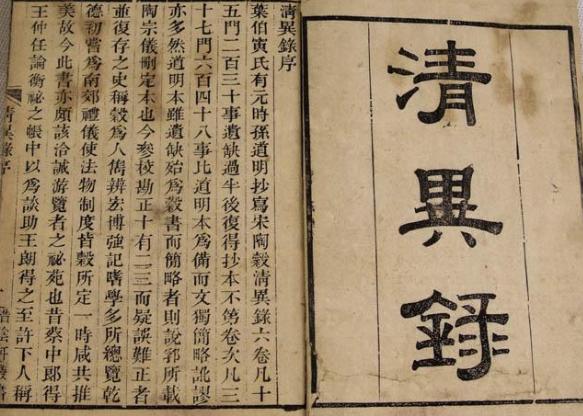 清異錄
清異錄序
葉伯寅氏有元時孫道明抄寫宋陶穀清異錄六卷凡十
五門二百三十事遺缺過半後復得抄本不第卷次凡三
十七門六百四十八事比道明本爲備而文獨簡略訛謬
亦多然道明本雖遺缺始爲穀書而簡略者則說郛所載
陶宗儀刪定本也今參校勘正十有二三而疑誤難正者
並復存之史稱穀爲人雋辨宏博強記嗜學多所總覽乾
德初嘗爲南郊禮儀使法物制度皆穀所定一時咸共推
美故今此書亦頗該洽誠游覽者之祕苑也昔蔡中郎得
王仲任論衡祕之帳中以爲談助王朗得之至許下人稱
清異錄序